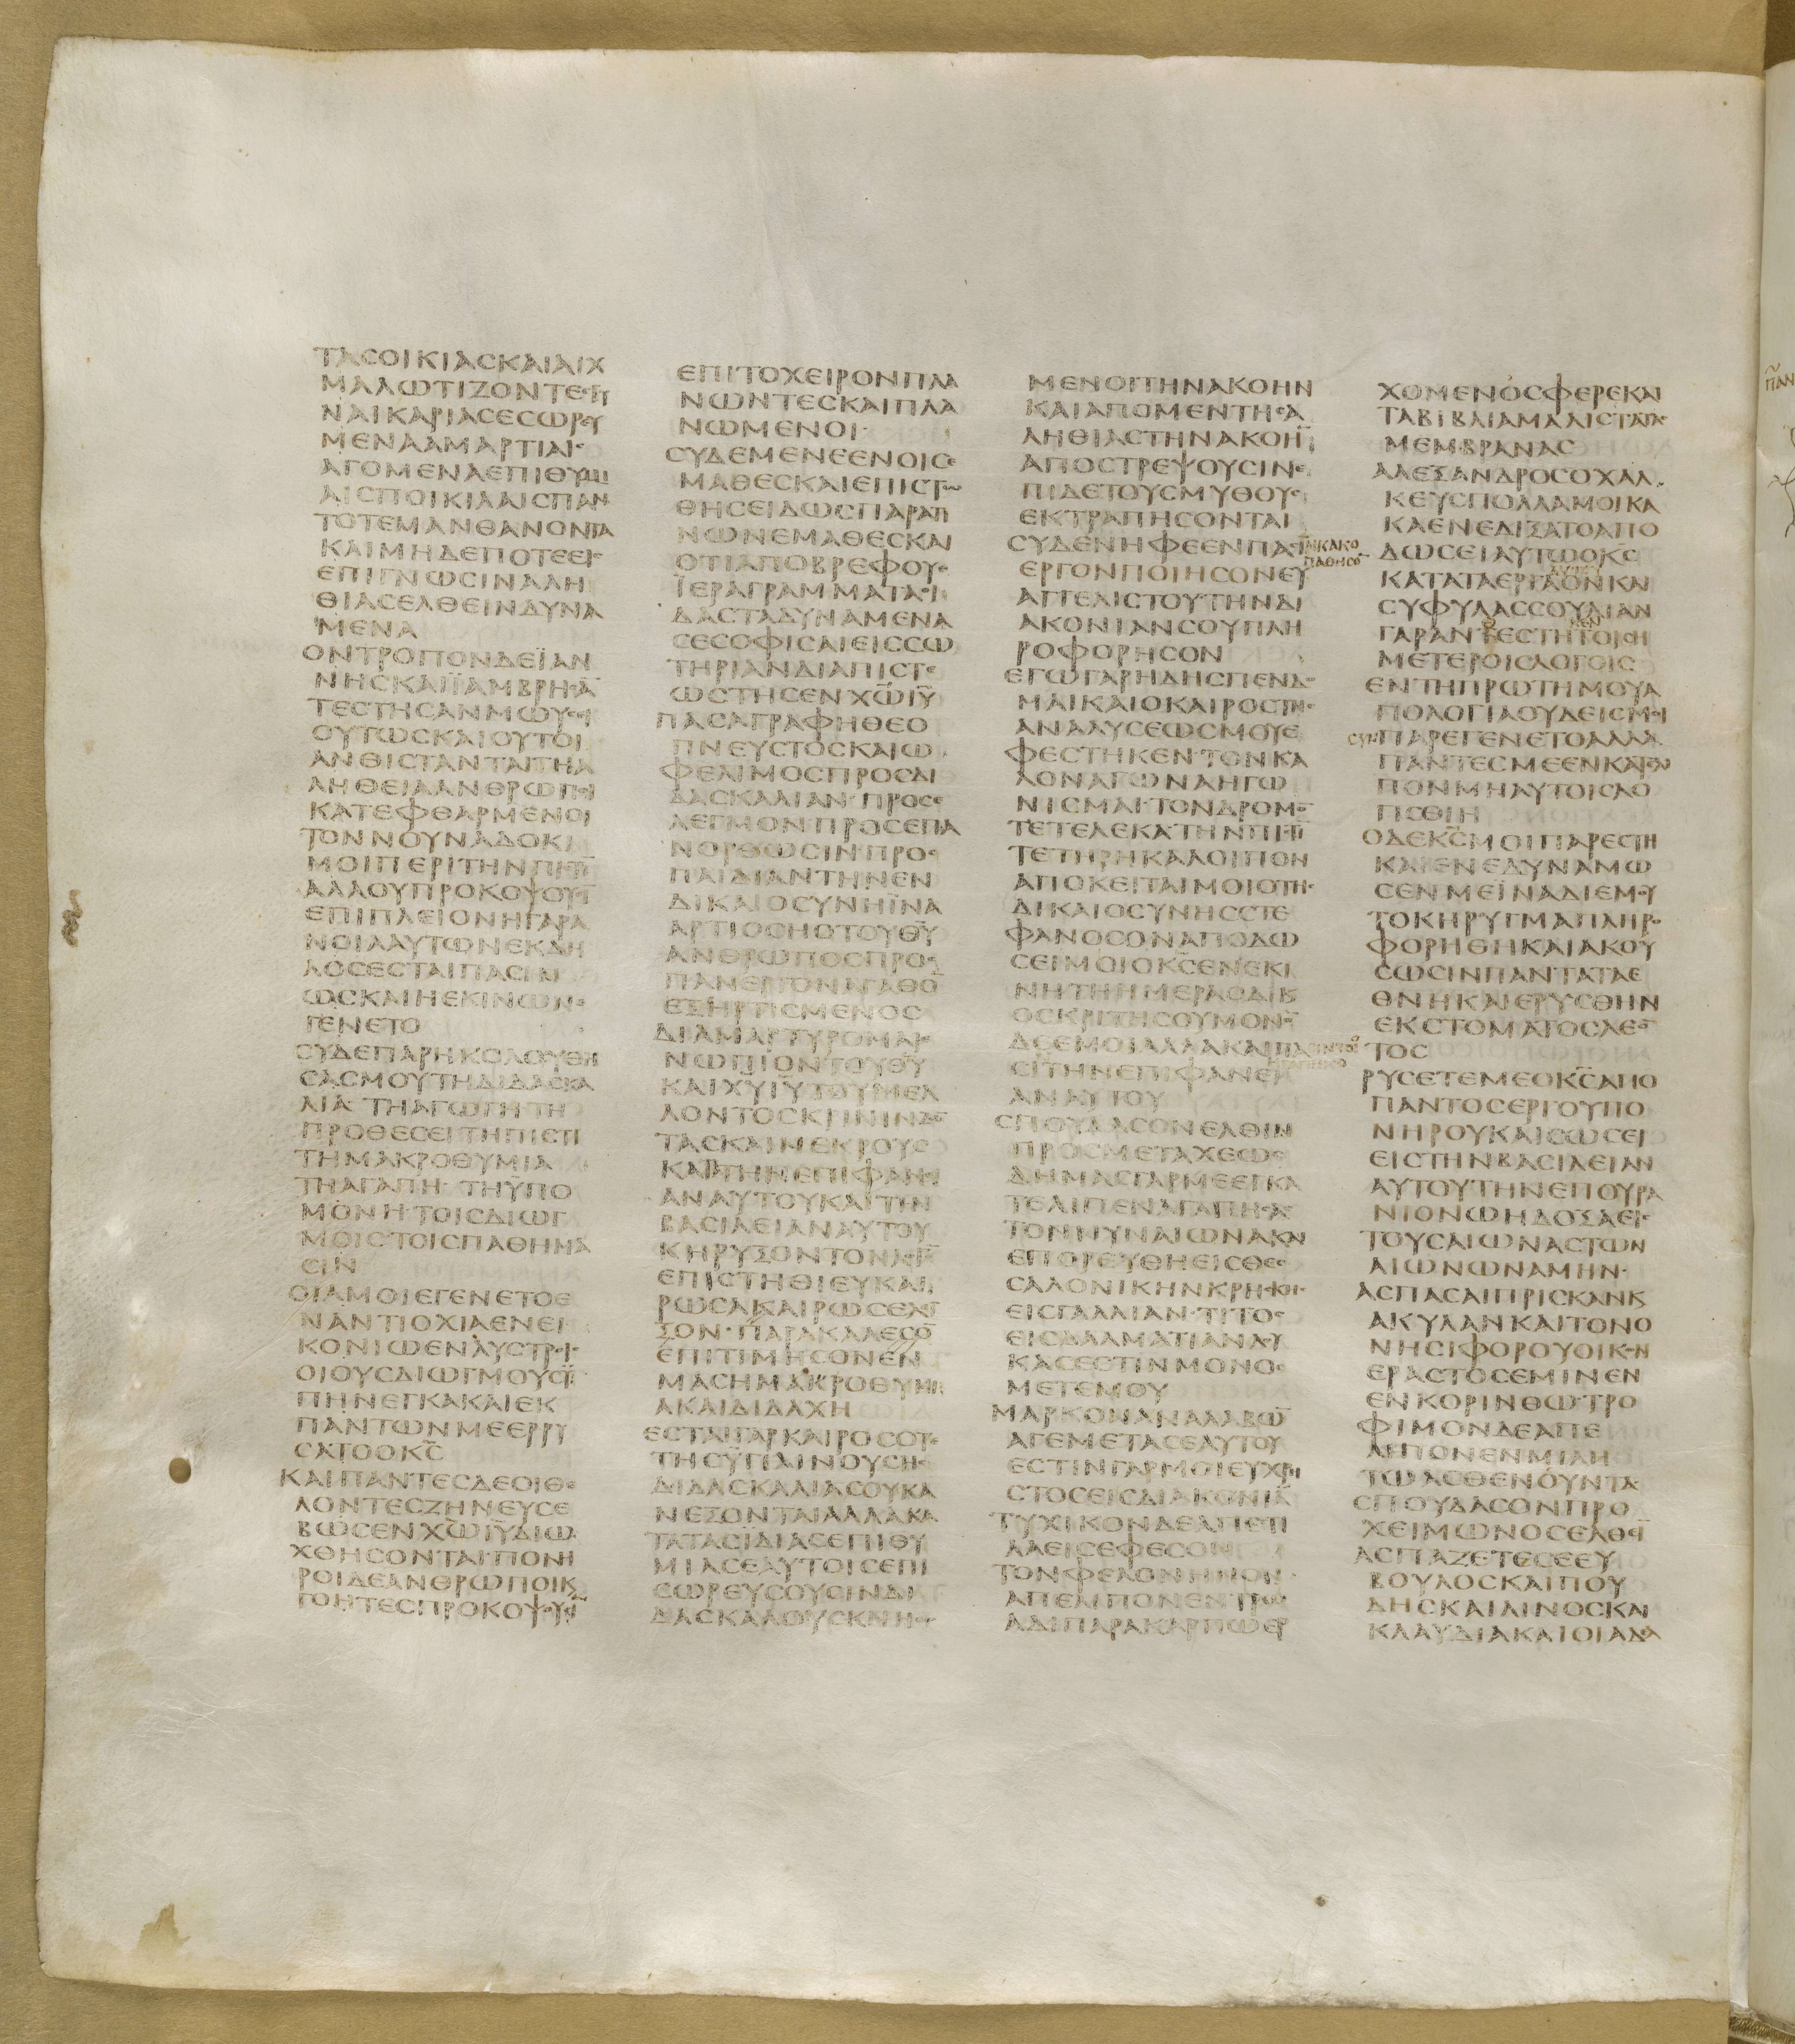 ΤΑСΟΙΚΙΑСΚΑΙΑΙΧ
ΜΑΛΩΤΙΖΟΝΤΕСΓΥ
ΝΑΙΚΑΡΙΑСΕСΩΡΕΥ
ΜΕΝΑΑΜΑΡΤΙΑΙС
ΑΓΟΜΕΝΑΕΠΙΘΥΜΙ
ΑΙСΠΟΙΚΙΛΑΙСΠΑΝ
ΤΟΤΕΜΑΝΘΑΝΟΝΤΑ
ΚΑΙΜΗΔΕΠΟΤΕΕΙС
ΕΠΙΓΝΩСΙΝΑΛΗ
ΘΙΑСΕΛΘΕΙΝΔΥΝΑ
ΜΕΝΑ
ΟΝΤΡΟΠΟΝΔΕΪΑΝ
ΝΗСΚΑΙΪΑΜΒΡΗСΑ̅
ΤΕСΤΗСΑΝΜΩΥСΕΙ
ΟΥΤΩСΚΑΙΟΥΤΟΙ
ΑΝΘΙСΤΑΝΤΑΙΤΗΑ
ΛΗΘΕΙΑΑΝΘΡΩΠΟΙ
ΚΑΤΕΦΘΑΡΜΕΝΟΙ
ΤΟΝΝΟΥΝΑΔΟΚΙ
ΜΟΙΠΕΡΙΤΗΝΠΙСΤΙ̅
ΑΛΛΟΥΠΡΟΚΟΨΟΥСΙ̅
ΕΠΙΠΛΕΙΟΝΗΓΑΡΑ
ΝΟΙΑΑΥΤΩΝΕΚΔΗ
ΛΟСΕСΤΑΙΠΑСΙΝ
ΩСΚΑΙΗΕΚΙΝΩΝΕ
ΓΕΝΕΤΟ
СΥΔΕΠΑΡΗΚΟΛΟΥΘΗ
СΑСΜΟΥΤΗΔΙΔΑСΚΑ
ΛΙΑ ΤΗΑΓΩΓΗΤΗ
ΠΡΟΘΕСΕΙΤΗΠΙСΤΙ
ΤΗΜΑΚΡΟΘΥΜΙΑ
ΤΗΑΓΑΠΗ ΤΗΫΠΟ
ΜΟΝΗΤΟΙСΔΙΩΓ
ΜΟΙСΤΟΙСΠΑΘΗΜΑ
СΙΝ
ΟΙΑΜΟΙΕΓΕΝΕΤΟΕ
ΝΑΝΤΙΟΧΙΑΕΝΕΙ
ΚΟΝΙΩΕΝΛΥСΤΡΟΙС
ΟΙΟΥСΔΙΩΓΜΟΥСΫ
ΠΗΝΕΓΚΑΚΑΙΕΚ
ΠΑΝΤΩΝΜΕΕΡΡΥ
СΑΤΟΟΚ̅С̅
ΚΑΙΠΑΝΤΕСΔΕΟΙΘΕ
ΛΟΝΤΕСΖΗΝΕΥСΕ
ΒΩСΕΝΧ̅Ω̅Ι̅Υ̅ΔΙΩ
ΧΘΗСΟΝΤΑΙΠΟΝΗ
ΡΟΙΔΕΑΝΘΡΩΠΟΙΚ
ΓΟΗΤΕСΠΡΟΚΟΨΟΥСΙ̅
ΕΠΙΤΟΧΕΙΡΟΝΠΛΑ
ΝΩΝΤΕСΚΑΙΠΛΑ
ΝΩΜΕΝΟΙ
СΥΔΕΜΕΝΕΕΝΟΙС
ΕΜΑΘΕСΚΑΙΕΠΙСΤΩ
ΘΗСΕΙΔΩСΠΑΡΑΤΙ
ΝΩΝΕΜΑΘΕСΚΑΙ
ΟΤΙΑΠΟΒΡΕΦΟΥС
ΪΕΡΑΓΡΑΜΜΑΤΑΟΙ
ΔΑСΤΑΔΥΝΑΜΕΝΑ
СΕСΟΦΙСΑΙΕΙССΩ
ΤΗΡΙΑΝΔΙΑΠΙСΤΕ
ΩСΤΗСΕΝΧ̅Ω̅Ι̅Υ̅
ΠΑСΑΓΡΑΦΗΘΕΟ
ΠΝΕΥСΤΟСΚΑΙΩ
ΦΕΛΙΜΟСΠΡΟСΔΙ
ΔΑСΚΑΛΙΑΝ ΠΡΟСΕ
ΛΕΓΜΟΝΠΡΟСΕΠΑ
ΝΟΡΘΩСΙΝΠΡΟС
ΠΑΙΔΙΑΝΤΗΝΕΝ
ΔΙΚΑΙΟСΥΝΗΪΝΑ
ΑΡΤΙΟСΗΟΤΟΥΘ̅Υ̅
ΑΝΘΡΩΠΟСΠΡΟС
ΠΑΝΕΡΓΟΝΑΓΑΘΟ̅
ΕΞΗΡΤΙСΜΕΝΟС
ΔΙΑΜΑΡΤΥΡΟΜΑΙΕ
ΝΩΠΙΟΝΤΟΥΘ̅Υ̅
ΚΑΙΧ̅Υ̅Ι̅Υ̅ΤΟΥΜΕΛ
ΛΟΝΤΟСΚΡΙΝΙΝΖΩ̅
ΤΑСΚΑΙΝΕΚΡΟΥС
ΚΑΙΤΗΝΕΠΙΦΑΝΕΙ
ΑΝΑΥΤΟΥΚΑΙΤΗΝ
ΒΑСΙΛΕΙΑΝΑΥΤΟΥ
ΚΗΡΥΞΟΝΤΟΝΛΟΓΟ̅
ΕΠΙСΤΗΘΙΕΥΚΑΙ
ΡΩСΑΚΑΙΡΩСΕΛΕΓ
ΞΟΝ ΠΑΡΑΚΑΛΕСΟ̅
ΕΠΙΤΙΜΗСΟΝΕΝ
ΠΑСΗΜΑΚΡΟΘΥΜΙ
ΑΚΑΙΔΙΔΑΧΗ
ΕСΤΑΙΓΑΡΚΑΙΡΟСΟΤΕ
ΤΗСΫΓΙΑΙΝΟΥСΗС
ΔΙΔΑСΚΑΛΙΑСΟΥΚΑ
ΝΕΞΟΝΤΑΙΑΛΛΑΚΑ
ΤΑΤΑСΪΔΙΑСΕΠΙΘΥ
ΜΙΑСΕΑΥΤΟΙСΕΠΙ
СΩΡΕΥСΟΥСΙΝΔΙ
ΔΑСΚΑΛΟΥСΚΝΗΘΟ
ΜΕΝΟΙΤΗΝΑΚΟΗΝ
ΚΑΙΑΠΟΜΕΝΤΗСΑ
ΛΗΘΙΑСΤΗΝΑΚΟΗ̅
ΑΠΟСΤΡΕΨΟΥСΙΝΕ
ΠΙΔΕΤΟΥСΜΥΘΟΥС
ΕΚΤΡΑΠΗСΟΝΤΑΙ
СΥΔΕΝΗΦΕΕΝΠΑСΙ̅
ΚΑΚΟ
ΠΑΘΗСΟ̅
ΕΡΓΟΝΠΟΙΗСΟΝΕΥ
ΑΓΓΕΛΙСΤΟΥΤΗΝΔΙ
ΑΚΟΝΙΑΝСΟΥΠΛΗ
ΡΟΦΟΡΗСΟΝ
ΕΓΩΓΑΡΗΔΗСΠΕΝΔΟ
ΜΑΙΚΑΙΟΚΑΙΡΟСΤΗС
ΑΝΑΛΥСΕΩСΜΟΥΕ
ΦΕСΤΗΚΕΝΤΟΝΚΑ
ΛΟΝΑΓΩΝΑΗΓΩ
ΝΙСΜΑΙΤΟΝΔΡΟΜΟ̅
ΤΕΤΕΛΕΚΑΤΗΝΠΙСΤΙ̅
ΤΕΤΗΡΗΚΑΛΟΙΠΟΝ
ΑΠΟΚΕΙΤΑΙΜΟΙΟΤΗС
ΔΙΚΑΙΟСΥΝΗССΤΕ
ΦΑΝΟСΟΝΑΠΟΔΩ
СΕΙΜΟΙΟΚ̅С̅ΕΝΕΚΙ
ΝΗΤΗΗΜΕΡΑΟΔΙΚ
ΟСΚΡΙΤΗСΟΥΜΟΝΟ̅
ΔΕΕΜΟΙΑΛΛΑΚΑΙΠΑ
СΙΤΗΝΕΠΙΦΑΝΕΙ
ΑΝΑΥΤΟΥ
СΠΟΥΔΑСΟΝΕΛΘΙΝ
ΠΡΟСΜΕΤΑΧΕΩС
ΔΗΜΑСΓΑΡΜΕΕΓΚΑ
ΤΕΛΙΠΕΝΑΓΑΠΗСΑС
ΤΟΝΝΥΝΑΙΩΝΑΚΑΙ
ΕΠΟΡΕΥΘΗΕΙСΘΕС
СΑΛΟΝΙΚΗΝΚΡΗСΚΗС
ΕΙСΓΑΛΛΙΑΝ ΤΙΤΟС
ΕΙСΔΑΛΜΑΤΙΑΝΛΟΥ
ΚΑСΕСΤΙΝΜΟΝΟС
ΜΕΤΕΜΟΥ
ΜΑΡΚΟΝΑΝΑΛΑΒΩ̅
ΑΓΕΜΕΤΑСΕΑΥΤΟΥ
ΕСΤΙΝΓΑΡΜΟΙΕΥΧΡΗ
СΤΟСΕΙСΔΙΑΚΟΝΙΑ̅
ΤΥΧΙΚΟΝΔΕΑΠΕСΤΙ
ΛΑΕΙСΕΦΕСΟΝ
ΤΟΝΦΕΛΟΝΗΝΟΝ
ΑΠΕΛΙΠΟΝΕΝΤΡΩ
ΑΔΙΠΑΡΑΚΑΡΠΩΕΡ
ΧΟΜΕΝΟСΦΕΡΕΚΑΙ
ΤΑΒΙΒΛΙΑΜΑΛΙСΤΑΤΑС
ΜΕΜΒΡΑΝΑС
ΑΛΕΞΑΝΔΡΟСΟΧΑΛ
ΚΕΥСΠΟΛΛΑΜΟΙΚΑ
ΚΑΕΝΕΔΙΞΑΤΟΑΠΟ
ΔΩСΕΙΑΥΤΩΟΚ̅С̅
ΚΑΤΑΤΑΕΡΓΑΟΝΚΑΙ
СΥΦΥΛΑССΟΥΛΙΑΝ
ΓΑΡΑΝΤΕСΤΗΤΟΙСΗ
ΜΕΤΕΡΟΙСΛΟΓΟΙС
ΕΝΤΗΠΡΩΤΗΜΟΥΑ
ΠΟΛΟΓΙΑΟΥΔΕΙСΜΟΙ
СΥΜ
ΠΑΡΕΓΕΝΕΤΟΑΛΛΑ
ΠΑΝΤΕСΜΕΕΝΚΑΤΕΛΙ
ΠΟΝΜΗΑΥΤΟΙСΛΟ
ΓΙСΘΙΗ
ΟΔΕΚ̅С̅ΜΟΙΠΑΡΕСΤΗ
ΚΑΙΕΝΕΔΥΝΑΜΩ
СΕΝΜΕΪΝΑΔΙΕΜΟΥ
ΤΟΚΗΡΥΓΜΑΠΛΗΡΟ
ΦΟΡΗΘΗΚΑΙΑΚΟΥ
СΩСΙΝΠΑΝΤΑΤΑΕ
ΘΝΗΚΑΙΕΡΥСΘΗΝ
ΕΚСΤΟΜΑΤΟСΛΕΟ̅
ΤΟС
ΡΥСΕΤΕΜΕΟΚ̅С̅ΑΠΟ
ΠΑΝΤΟСΕΡΓΟΥΠΟ
ΝΗΡΟΥΚΑΙСΩСΕΙ
ΕΙСΤΗΝΒΑСΙΛΕΙΑΝ
ΑΥΤΟΥΤΗΝΕΠΟΥΡΑ
ΝΙΟΝΩΗΔΟΞΑΕΙС
ΤΟΥСΑΙΩΝΑСΤΩΝ
ΑΙΩΝΩΝΑΜΗΝ
ΑСΠΑСΑΙΠΡΙСΚΑΝΚ
ΑΚΥΛΑΝΚΑΙΤΟΝΟ
ΝΗСΙΦΟΡΟΥΟΙΚΟΝ
ΕΡΑСΤΟСΕΜΙΝΕΝ
ΕΝΚΟΡΙΝΘΩΤΡΟ
ΦΙΜΟΝΔΕΑΠΕ
ΛΙΠΟΝΕΝΜΙΛΗ
ΤΩΑСΘΕΝΟΥΝΤΑ
СΠΟΥΔΑСΟΝΠΡΟ
ΧΕΙΜΩΝΟСΕΛΘΕΙ̅
ΑСΠΑΖΕΤΕСΕΕΥ
ΒΟΥΛΟСΚΑΙΠΟΥ
ΔΗСΚΑΙΛΙΝΟСΚΑΙ
ΚΛΑΥΔΙΑΚΑΙΟΙΑΔΕΛ